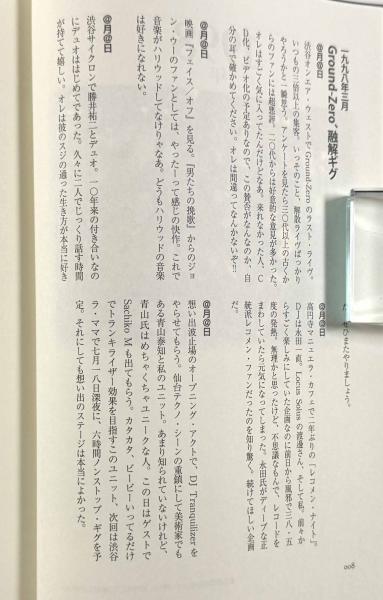 一九九八年三月
Ground-Zero 融解ギグ
@月@日
渋谷オンエア・ウェストでGround-Zeroのラスト・ライヴ。
いつもの三倍以上の集客。いっそのこと、解散ライヴばっかり
やろうかと一瞬考う。アンケートを見たら三〇代以上の古くか
らのファンには超悪評、二〇代からは好意的な意見が多かった。
オレはすごく気に入ってたんだけどなあ。来れなかった人、C
D化、ビデオ化の予定ありなので、この賛否がなんなのか、自
分の耳で確かめてください。オレは間違ってなんかないぞ!!
@月@日
映画『フェイス/オフ』を見る。『男たちの挽歌』からのジョ
ン・ウーのファンとしては、やったーって感じの快作。これで
音楽がハリウッドしてなけりゃなあ。どうもハリウッドの音楽
は好きになれない。
@月@日
渋谷サイクロンで勝井祐二とデュオ。一〇年来の付き合いなの
にデュオははじめてであった。久々に二人でじっくり話す時間
が持てて嬉しい。オレは彼のスジの通った生き方が本当に好き
ぜひまたやりましょう。
@月@日
高円寺マニュエラ・カフェで二年ぶりの「レコメン・ナイト」。
DJは永田一直、Locus Solusの渡邊さん、そして私。前々か
らすごく楽しみにしていた企画なのに前日から風邪で三八・五
度の発熱。無理かと思ったけど、不思議なもんで、レコードを
まわしていたら元気になってしまった。永田氏がディープな正
統派レコメン・ファンだったのを知り驚く。続けてほしい企画
だ。
@月@日
想い出波止場のオープニング・アクトで、DJ Tranquilizerを
やらせてもらう。仙台テクノ・シーンの重鎮にして美術家でも
ある青山泰知と私のユニット。あまり知られていないけれど、
青山氏はめちゃくちゃユニークな人。この日はゲストで
Sachiko Mも出てもらう。カタカタ、ピーピーいってるだけ
でトランキライザー効果を目指すこのユニット、次回は渋谷
ラ・ママで七月一八日深夜に、六時間ノンストップ・ギグを予
定。それにしても想い出のステージは本当によかった。
008